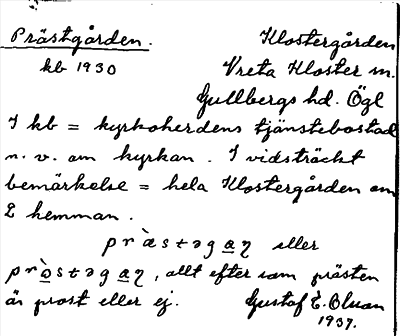 Prästgården. Klostergården
kb 1930 Vreta Kloster sn.
Gullbergs hd. Ögl
I kb = kyrkoherdens tjänstebostad
n. v. om kyrkan. I vidsträckt
bemärkelse = hela Klostergården om
2 hemman.
præ̀stəga̲ŋ eller
prò̲stəga̲ŋ, allt efter som prästen
är prost eller ej. Gustaf E.
1937.